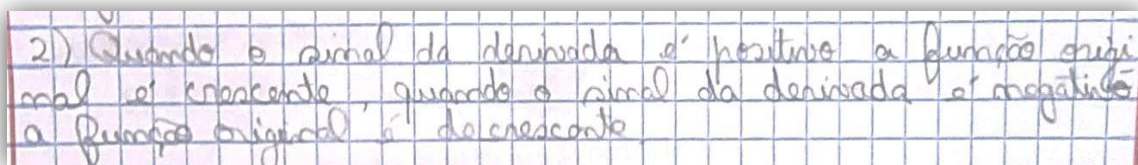 2) Quando o sinal da derivada é positivo a função origi
nal é crescente, quando o sinal da derivada é negativo
a função original é decrescente